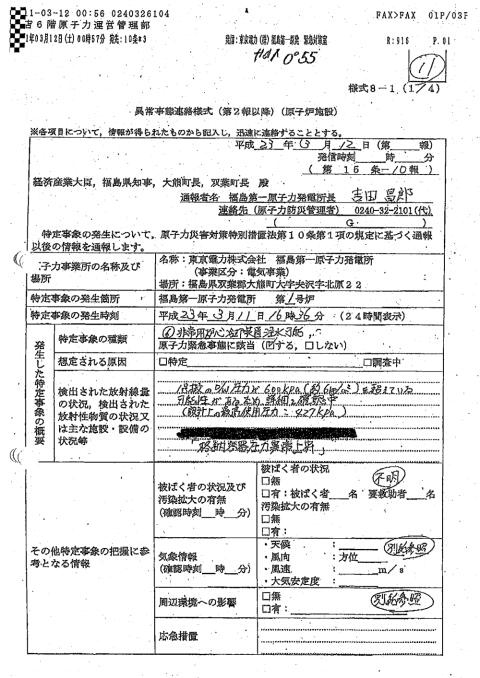 1-03-12 00:56 0240326104
FAX>FAX 01P/03P
6階原子力運営管理部
年03月12日(土)00時57分
発信:東京電力(株)福島第一原発 緊急対策室
R:916 P.01
0:55
11
様式8-1 (1/4)
異常事態連絡様式(第2報以降)(原子炉施設)
※各項目について、情報が得られたものから記入し、迅速に連絡することとする。
平成23年3月12日(第 報)
発信時刻 時 分
(第 15 条-10報)
経済産業大臣,福島県知事,大熊町長,双葉町長 殿
通報者名 福島第一原子力発電所長 吉田 昌郎
連絡先(原子力防災管理者) 0240-32-2101(代)
( G: )
特定事象の発生について、原子力災害対策特別措置法第10条第1項の規定に基づく通報
以後の情報を通報します。
子力事業所の名称及び
場所
名称:東京電力株式会社 福島第一原子力発電所
(事業区分:電気事業)
場所:福島県双葉郡大熊町大字夫沢字北原22
特定事象の発生箇所
福島第一原子力発電所 第1号炉
特定事象の発生時刻
平成23年3月11日16時36分(24時間表示)
発生した特定事象の概要
特定事象の種類
⑥非常用炉心冷却装置注水不能
原子力緊急事態に該当(☑する,□しない)
想定される原因
□特定 □調査中
検出された放射線量
の状況、検出された
放射性物質の状況又
は主な施設・設備の
状況等
1号機のD/W圧力が600kPaを超えている
可能性があるため、詳細を確認中
(設計上の最高使用圧力:427kPa)
「格納容器圧力異常上昇」
その他特定事象の把握に参
考となる情報
被ばく者の状況及び
汚染拡大の有無
(確認時刻 時 分)
被ばく者の状況
□無
不明
□有:被ばく者 名 要救助者 名
汚染拡大の有無
□無
□有:
気象情報
(確認時刻 時 分)
・天候 :
別紙参照
・風向 :方位
・風速 : m/s
・大気安定度 :
周辺環境への影響
□無
□有:
別紙参照
応急措置